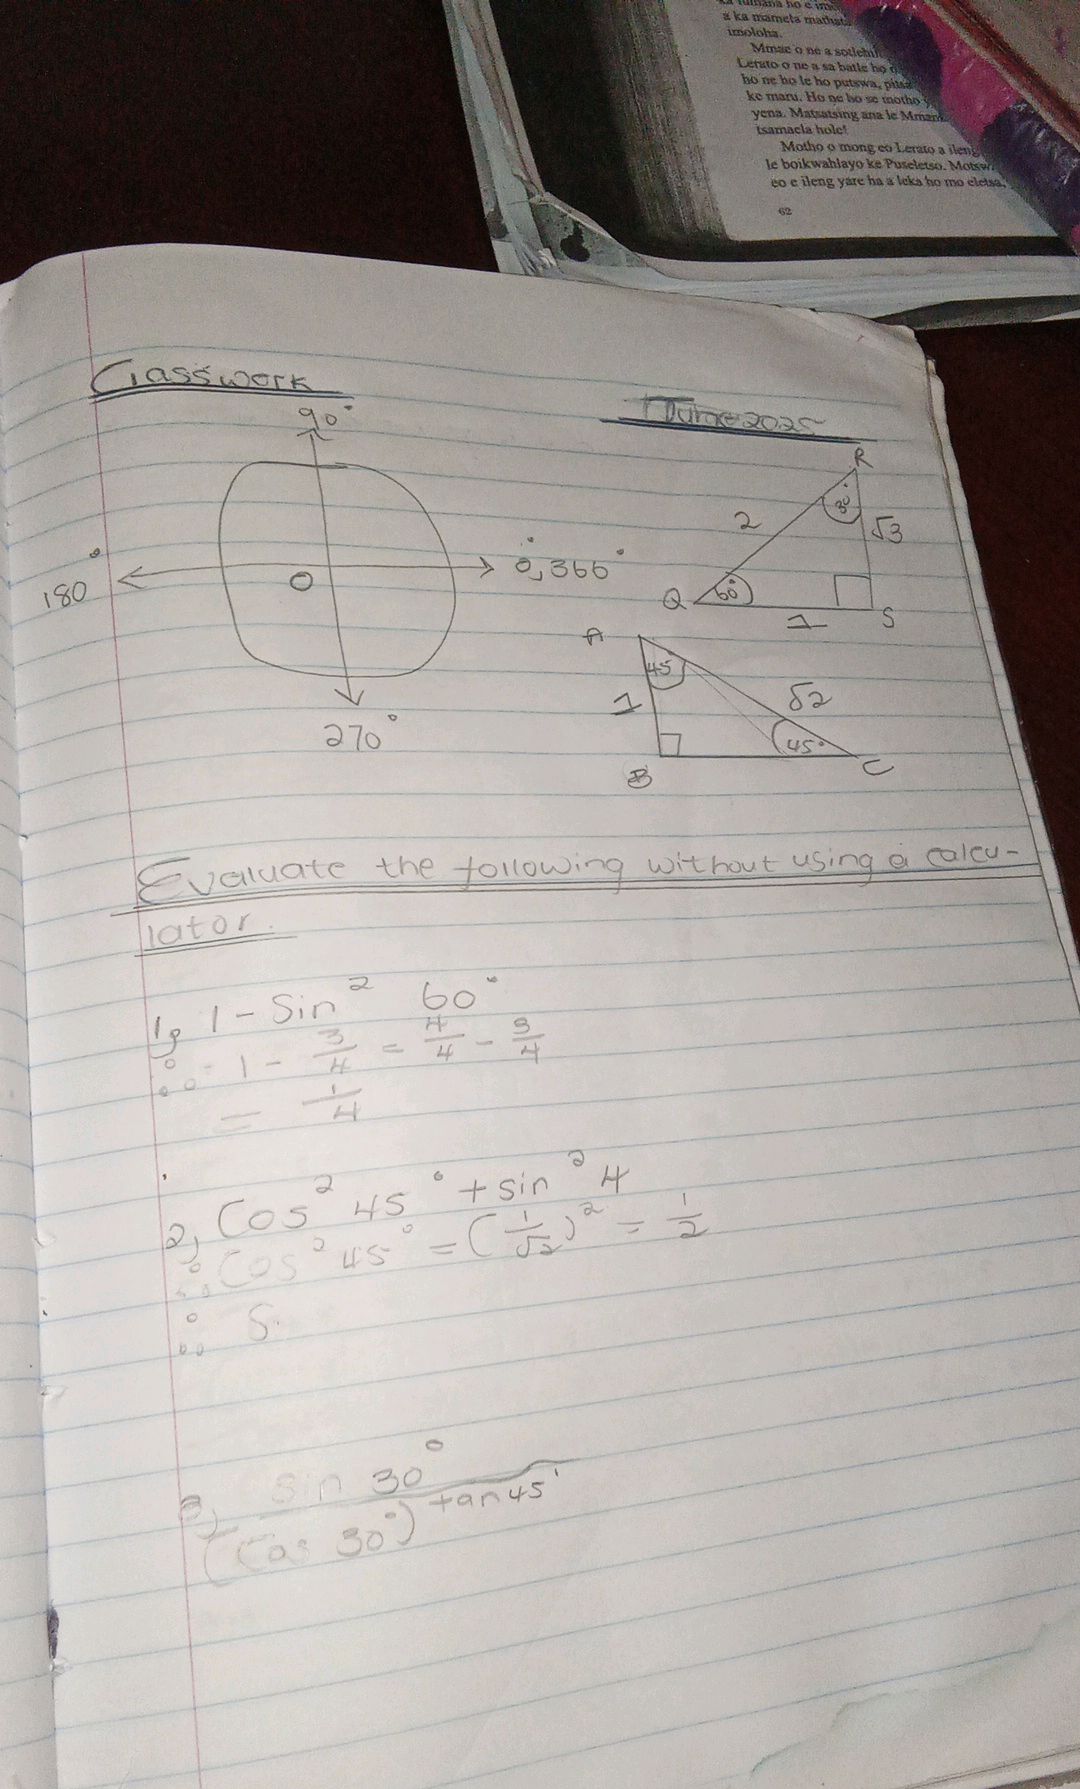 imoloha.
Mmae o ne a
Lerato o ne a sa batle ho
ho ne ho le ho putswa,
ke maru. Ho ne ho se motho
yena. Matsatsing ana le
tsamaela hole!
Motho o mong eo Lerato a
le boikwahlayo ke Puseletso.
eo e ileng yare ha a leka ho mo eletsa,
62
Classwork
June 2025
90°
180°
O
0°, 360°
270°
R
30°
2
√3
Q
60°
1
S
A
45
1
√2
B
45°
C
Evaluate the following without using a calcu-
lator.
1, 1 - Sin² 60°
∴ 1 - 3/4 = 4/4 - 3/4
= 1/4
2, Cos² 45° + sin² 4
∴ Cos² 45° = (1/√2)² = 1/2
∴ S
3, sin 30°
(Cos 30°) tan 45°